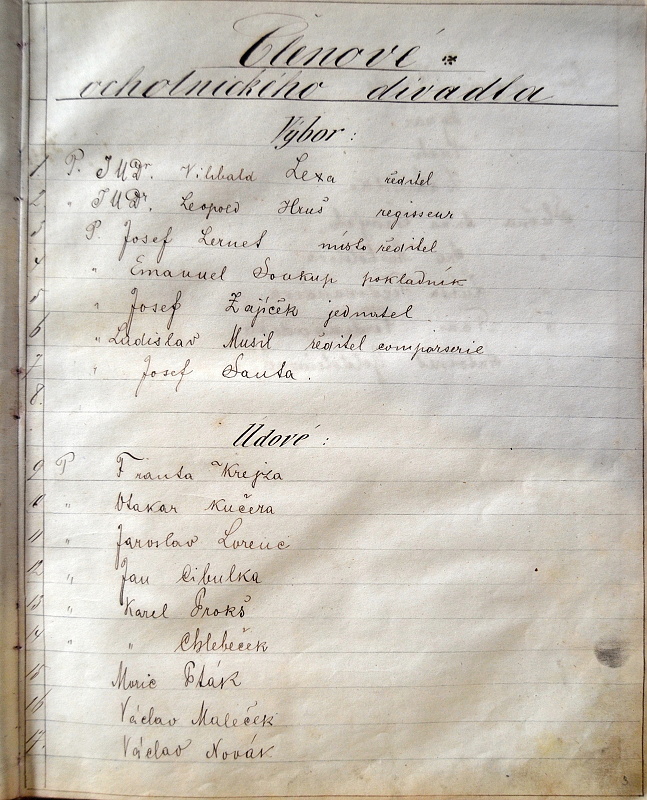 Členové
ochotnického divadla
Výbor:
1 P. JUDr. Vilibald Lexa ředitel
2 " JUDr. Leopold Hruš regisseur
3 P. Josef Lernet místo ředitel
4 " Emanuel Soukup pokladník
5 " Josef Zajíček jednatel
6 " Ladislav Musil ředitel comparserie
7 " Josef Šanta.
8.
Údové:
9 P Franta Krejza
10 " Otakar Kučera
11 " Jaroslav Lorenc
12 " Jan Cibulka
13 " Karel Prokš
14 " " Chlebeček
15 Moric Pták
16 Václav Maleček
17. Václav Novák
3